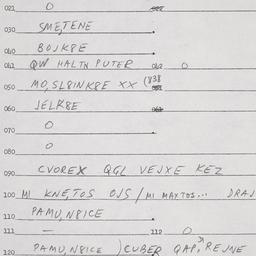 021 O 022
030 SME,TENE
040 BOJK8E
041 QW HALTH PUTER 042 O
050 MO,SL8INK8E XX (838
060 JELK8E 061
070 O
080 O
090 CVOREX QGL VEJXE KEZ
100 MI KNE,TOS OJS / MI MAXTOS... DRAJ
110 PAMU,N8ICE
111 — 112 O
120 PAMU,N8ICE ) CUBER QAP, REJNE